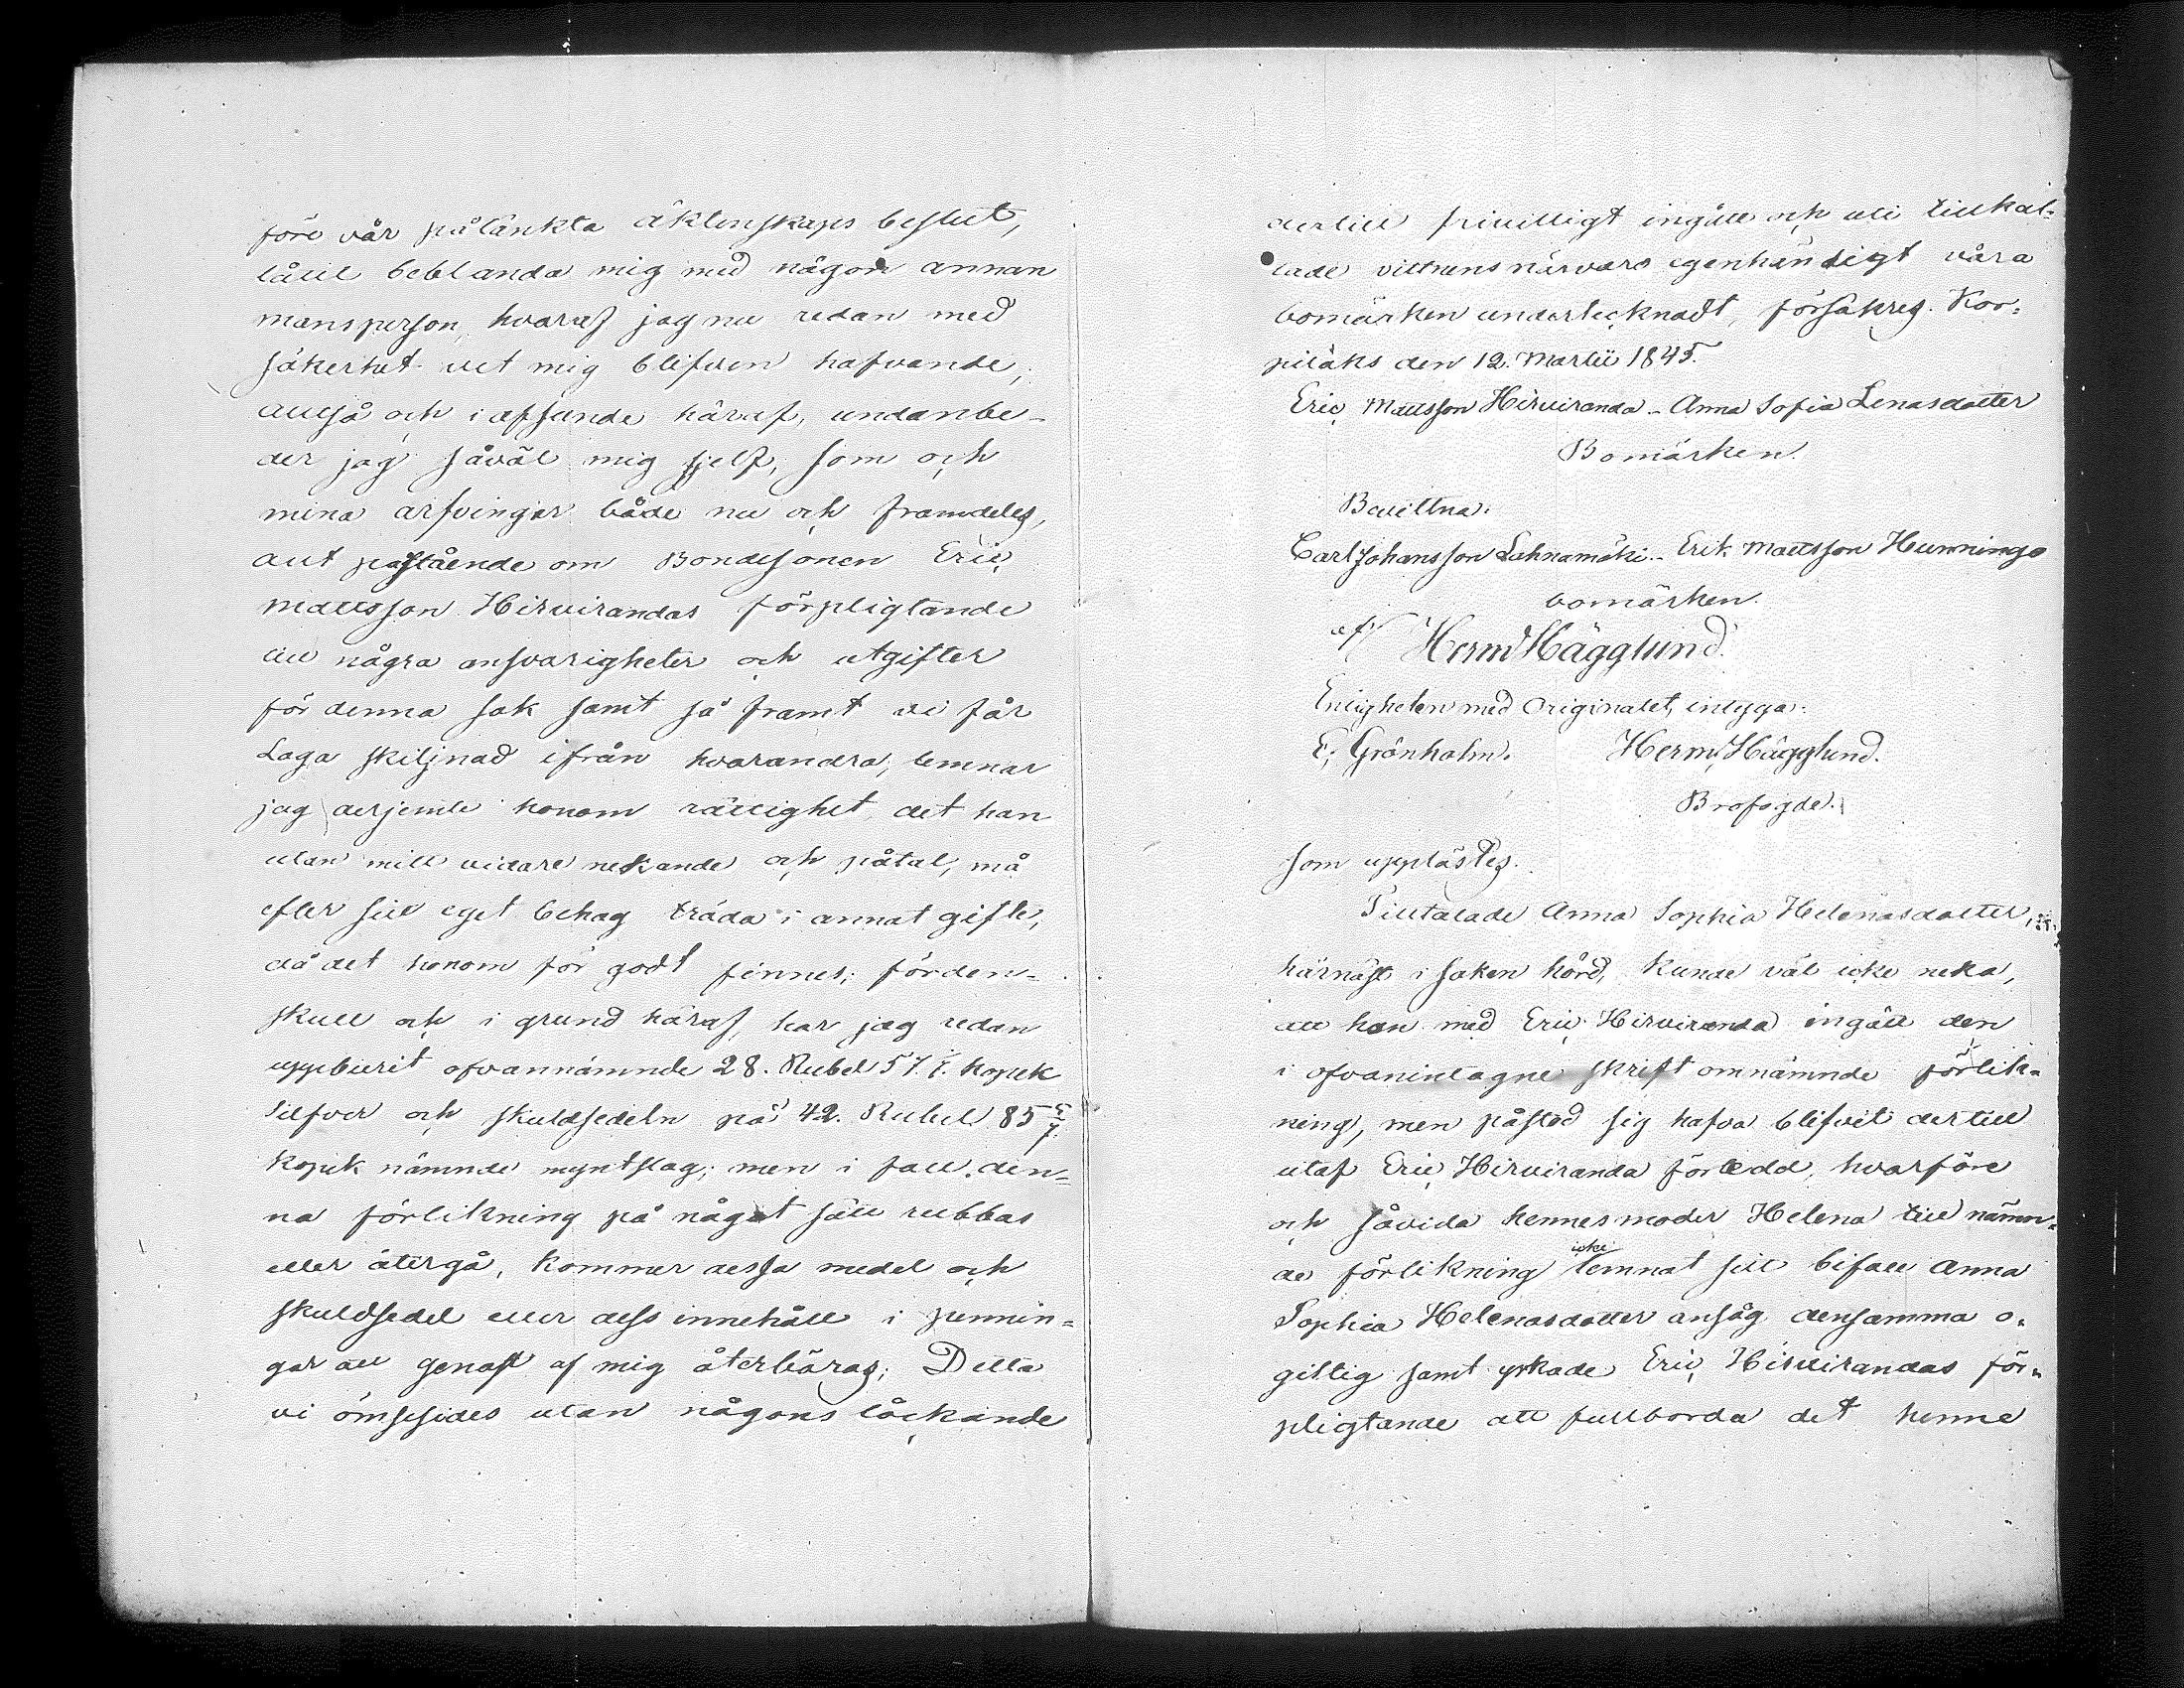 före vår påtänkta äktenskaps beslut,
låtit beblanda mig med någon annan
mansperson, hvaraf jag nu redan med
säkerhet vet mig blifven hafvande,
alltså och i afseende häraf, undanbe-
der jag såväl mig sjelf, som och
mina arfvingar både nu och framdeles,
allt påstående om Bondesonen Eric
Mattsson Hirvirandas förpligtande
till några ansvarigheter och utgifter
för denna sak samt så framt vi får
Laga skiljnad ifrån hvarandra, lemnar
jag derjemte honom rättighet det han
utan mitt vidare nekande och påtal, må
efter sitt eget behag träda i annat gifte,
då det honom för godt finnes; förden-
skull och i grund häraf har jag redan
uppburit ofvannämnde 28. Rubel 57 1/7. kopek
Silfver och skuldsedeln på 42. Rubel 85 5/7.
kopek nämnde myntslag; men i fall den=
na förlikning på något sätt rubbas
eller återgå, kommer dessa medel och
skuldsedel eller dess innehåll i pennin=
gar att genast af mig återbäras; Detta
vi ömsesides utan någons låckande
dertill frivilligt ingått och uti tillkal=
lade vittnens närvaro egenhändigt våra
bomärken undertecknadt, försäkras. Kor=
piläks den 12. Martii 1845.
Eric Mattsson Hirviranda - Anna Sofia Lenasdotter
Bomärken.
Bevittna.
Carl Johansson Lahnamäki - Erik Mattsson Hunninge
bomärken.
af/ Herm Hägglund.
Enligheten med Originalet, intyga.
E. Grönholm. Herm. Hägglund.
Brofogde.
som upplästes.
Tilltalade Anna Sophia Helenasdotter,
härnäst i saken hörd, kunde väl icke neka,
att hon med Eric Hirviranda ingått den
i ofvanintagne skrift omnämnde förlik=
ning, men påstod sig hafva blifvit dertill
utaf Eric Hirviranda förledd, hvarföre
och såvida hennes moder Helena till nämn=
de förlikning icke lemnat sitt bifall Anna
Sophia Helenasdotter ansåg densamma o=
giltig samt yrkade Eric Hirvirandas för=
pligtande att fullborda det henne